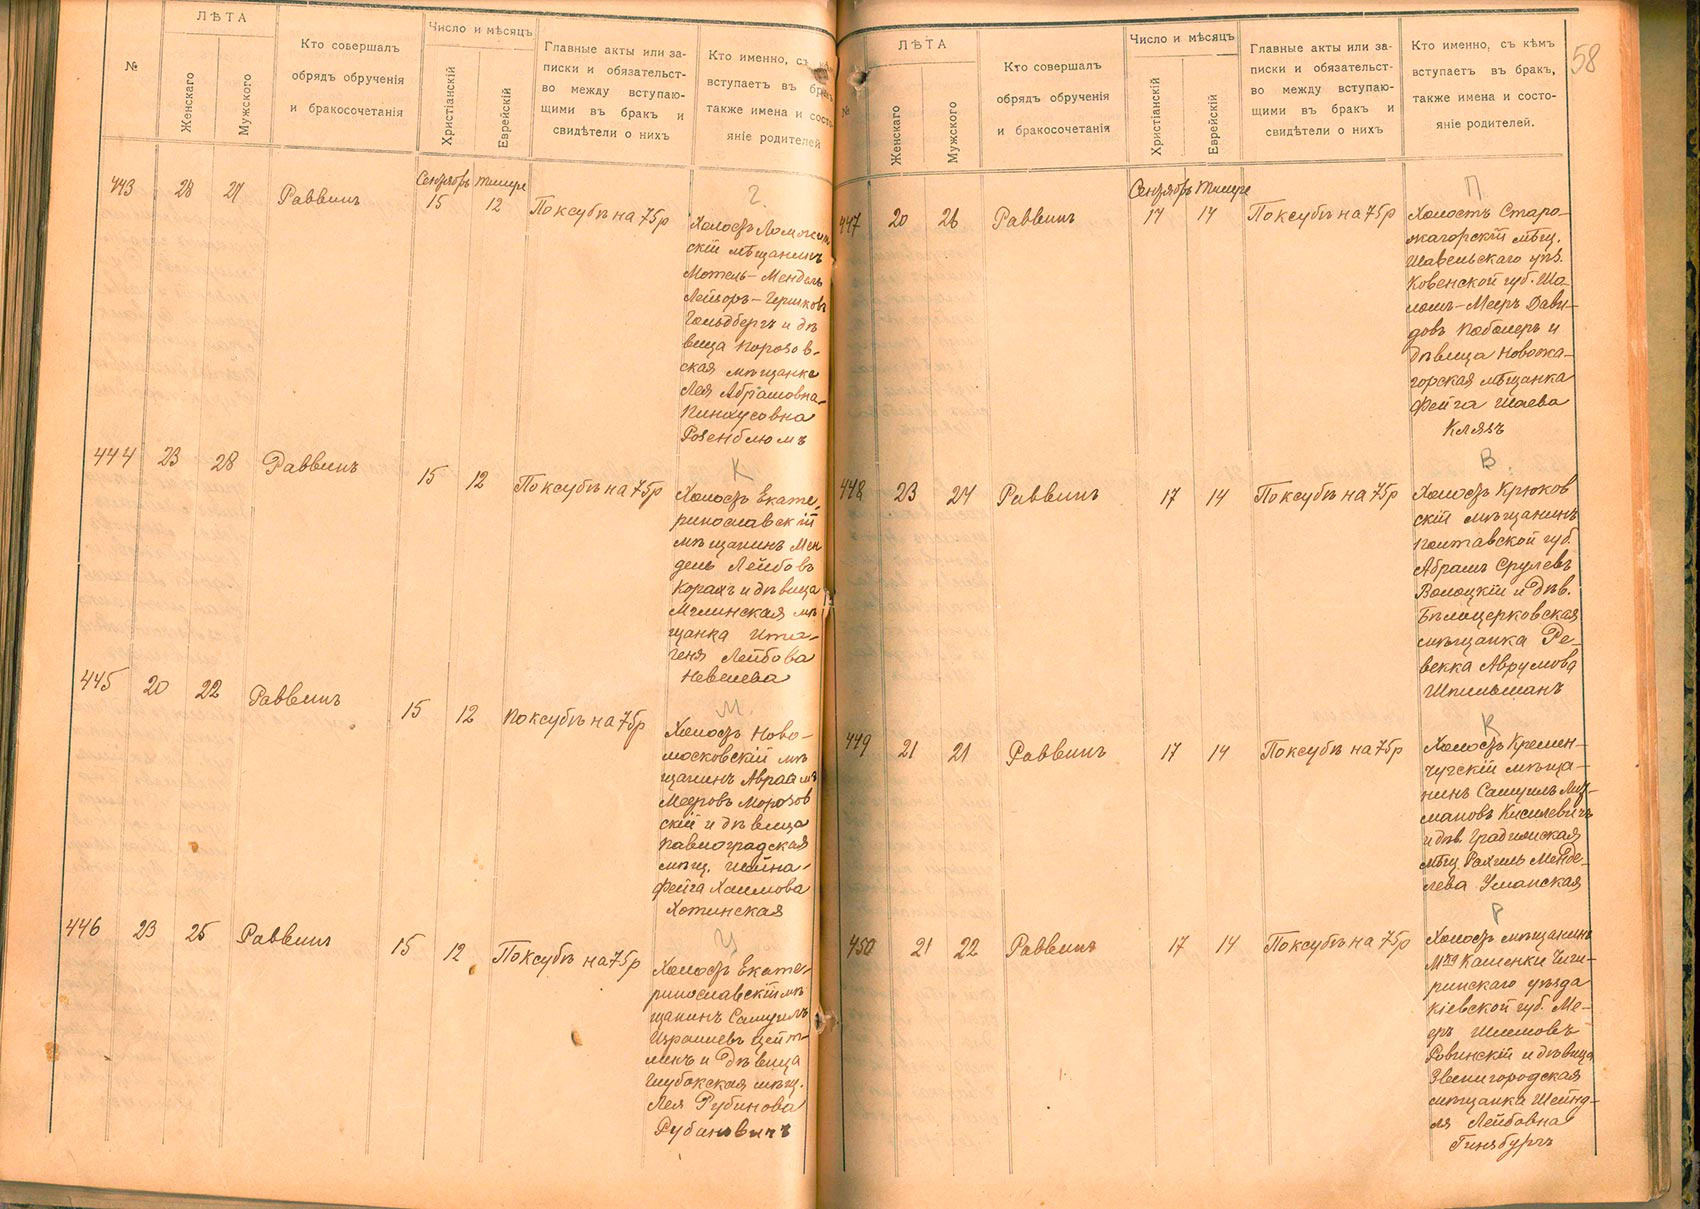 №
ЛѢТА
Женскаго
Мужского
Кто совершалъ
обрядъ обрученія
и бракосочетанія
Число и мѣсяцъ
Христіанскій
Еврейскій
Главные акты или за-
писки и обязательст-
во между вступаю-
щими въ бракъ и
свидѣтели о нихъ
Кто именно, съ кѣмъ
вступаетъ въ бракъ
также имена и состо-
яніе родителей
443
28
27
Раввинъ
Сентябрь
15
Тишре
12
По ксубѣ на 75р
Г.
Холостъ
скій мѣщанинъ
Мотель-Мендель
Лейзоръ-Гершковъ
Гольдбергъ и дѣ
вица Корозов-
ская мѣщанка
Лея Абрамовна-
Пинхусовна
Розенблюмъ
444
23
28
Раввинъ
15
12
По ксубѣ на 75р
К
Холостъ Екате-
ринославскій
мѣщанинъ Мен
дель Лейбовъ
Корахъ и дѣвица
Мглинская мѣ
щанка Ита-
Геня Лейбова
Невелева
445
20
22
Раввинъ
15
12
По ксубѣ на 75р
М.
Холостъ Ново-
московскій мѣ
щанинъ Авраамъ
Мееровъ Морозов
скій и дѣвица
Павлоградская
мѣщ. Шейна-
Фейга Хаимова
Хотинская
446
23
25
Раввинъ
15
12
По ксубѣ на 75р
Ц
Холостъ Екате-
ринославскій мѣ
щанинъ Самуилъ
Израилевъ Цейт-
линъ и дѣвица
Глубокская мѣщ.
Лея Рубинова
Рубановичъ
58
№
ЛѢТА
Женскаго
Мужского
Кто совершалъ
обрядъ обрученія
и бракосочетанія
Число и мѣсяцъ
Христіанскій
Еврейскій
Главные акты или за-
писки и обязательст-
во между вступаю-
щими въ бракъ и
свидѣтели о нихъ
Кто именно, съ кѣмъ
вступаетъ въ бракъ,
также имена и состо-
яніе родителей.
447
20
26
Раввинъ
Сентябрь
17
Тишре
14
По ксубѣ на 75р
П.
Холостъ Старо-
жагорскій мѣщ.
Шавельскаго уѣз.
Ковенской губ. Ша
ломъ-Мееръ Дави-
довъ и
дѣвица Новожа-
горская мѣщанка
Фейга Шаева
Клязъ
448
23
27
Раввинъ
17
14
По ксубѣ на 75р
В.
Холостъ Крюков
скій мѣщанинъ
Полтавской губ.
Абрамъ Срулевъ
Волоцкій и дѣв.
Бѣлоцерковская
мѣщанка Ре-
векка Аврумова
Шпильманъ
449
21
21
Раввинъ
17
14
По ксубѣ на 75р
К
Холостъ Кремен-
чугскій мѣща-
нинъ Самуилъ Лиз-
мановъ Кисилевичъ
и дѣв. Градижская
мѣщ. Рахиль Менде-
лева Уманская
450
21
22
Раввинъ
17
14
По ксубѣ на 75р
Р
Холостъ мѣщанинъ
Мка Каменки Чиги-
ринскаго уѣзда
Кіевской губ. Ме-
еръ Шлемовъ
Ровинскій и дѣвица
Звенигородская
мѣщанка Шейнд-
ля Лейбовна
Гинзбургъ